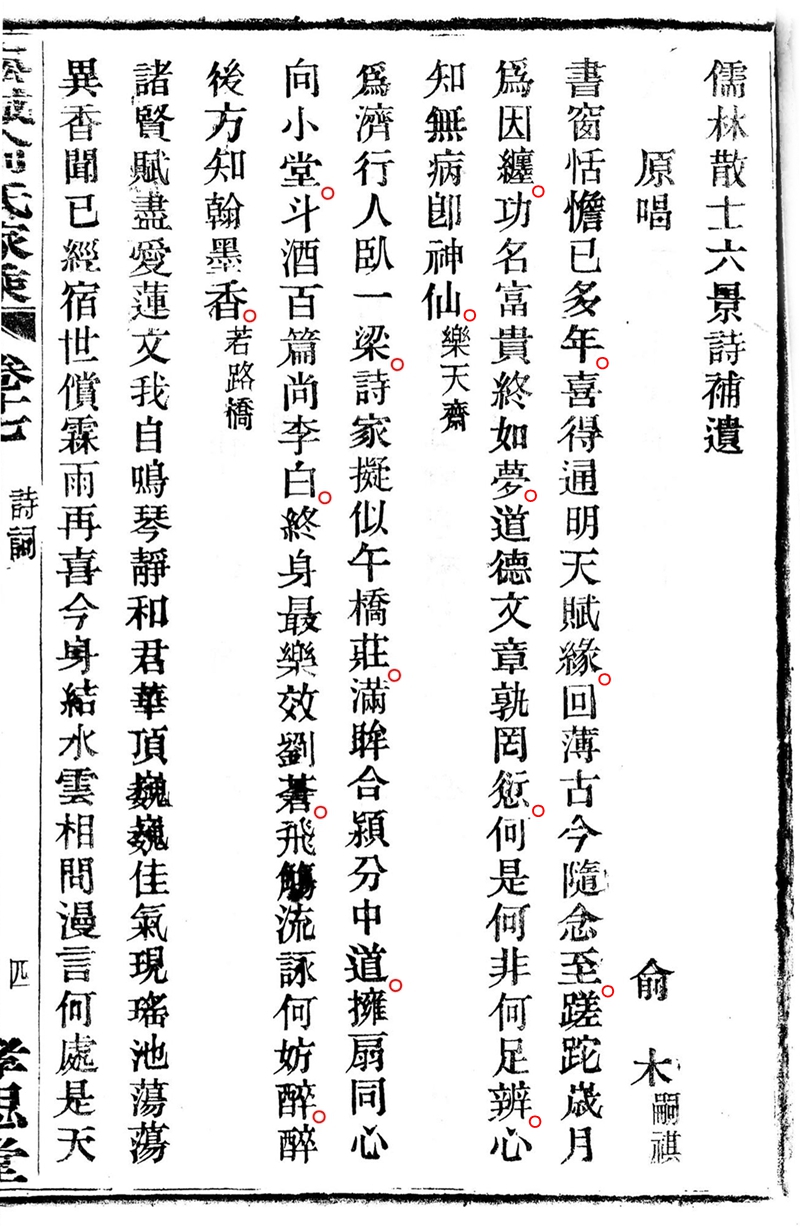 儒林散士六景詩補遺
原唱　俞木嗣祺
書窗恬憺已多年。喜得通明天賦緣。回薄古今隨念至。蹉跎歲月
爲因纏。功名富貴終如夢。道德文章孰罔愆。何是何非何足辨。心
知無病卽神仙。樂天齋
爲濟行人臥一梁。詩家擬似午橋莊。滿眸合潁分中道。擁扇同心
向小堂。斗酒百篇尚李白。終身最樂效劉蒼。飛觴流詠何妨醉。醉
後方知翰墨香。若路橋
諸賢賦盡愛蓮文我自鳴琴靜和君華頂巍巍佳氣現瑤池蕩蕩
異香聞已經宿世償霖雨再喜今身結水雲相問漫言何處是天
氏家乘 卷十七 詩詞 四 孝思堂